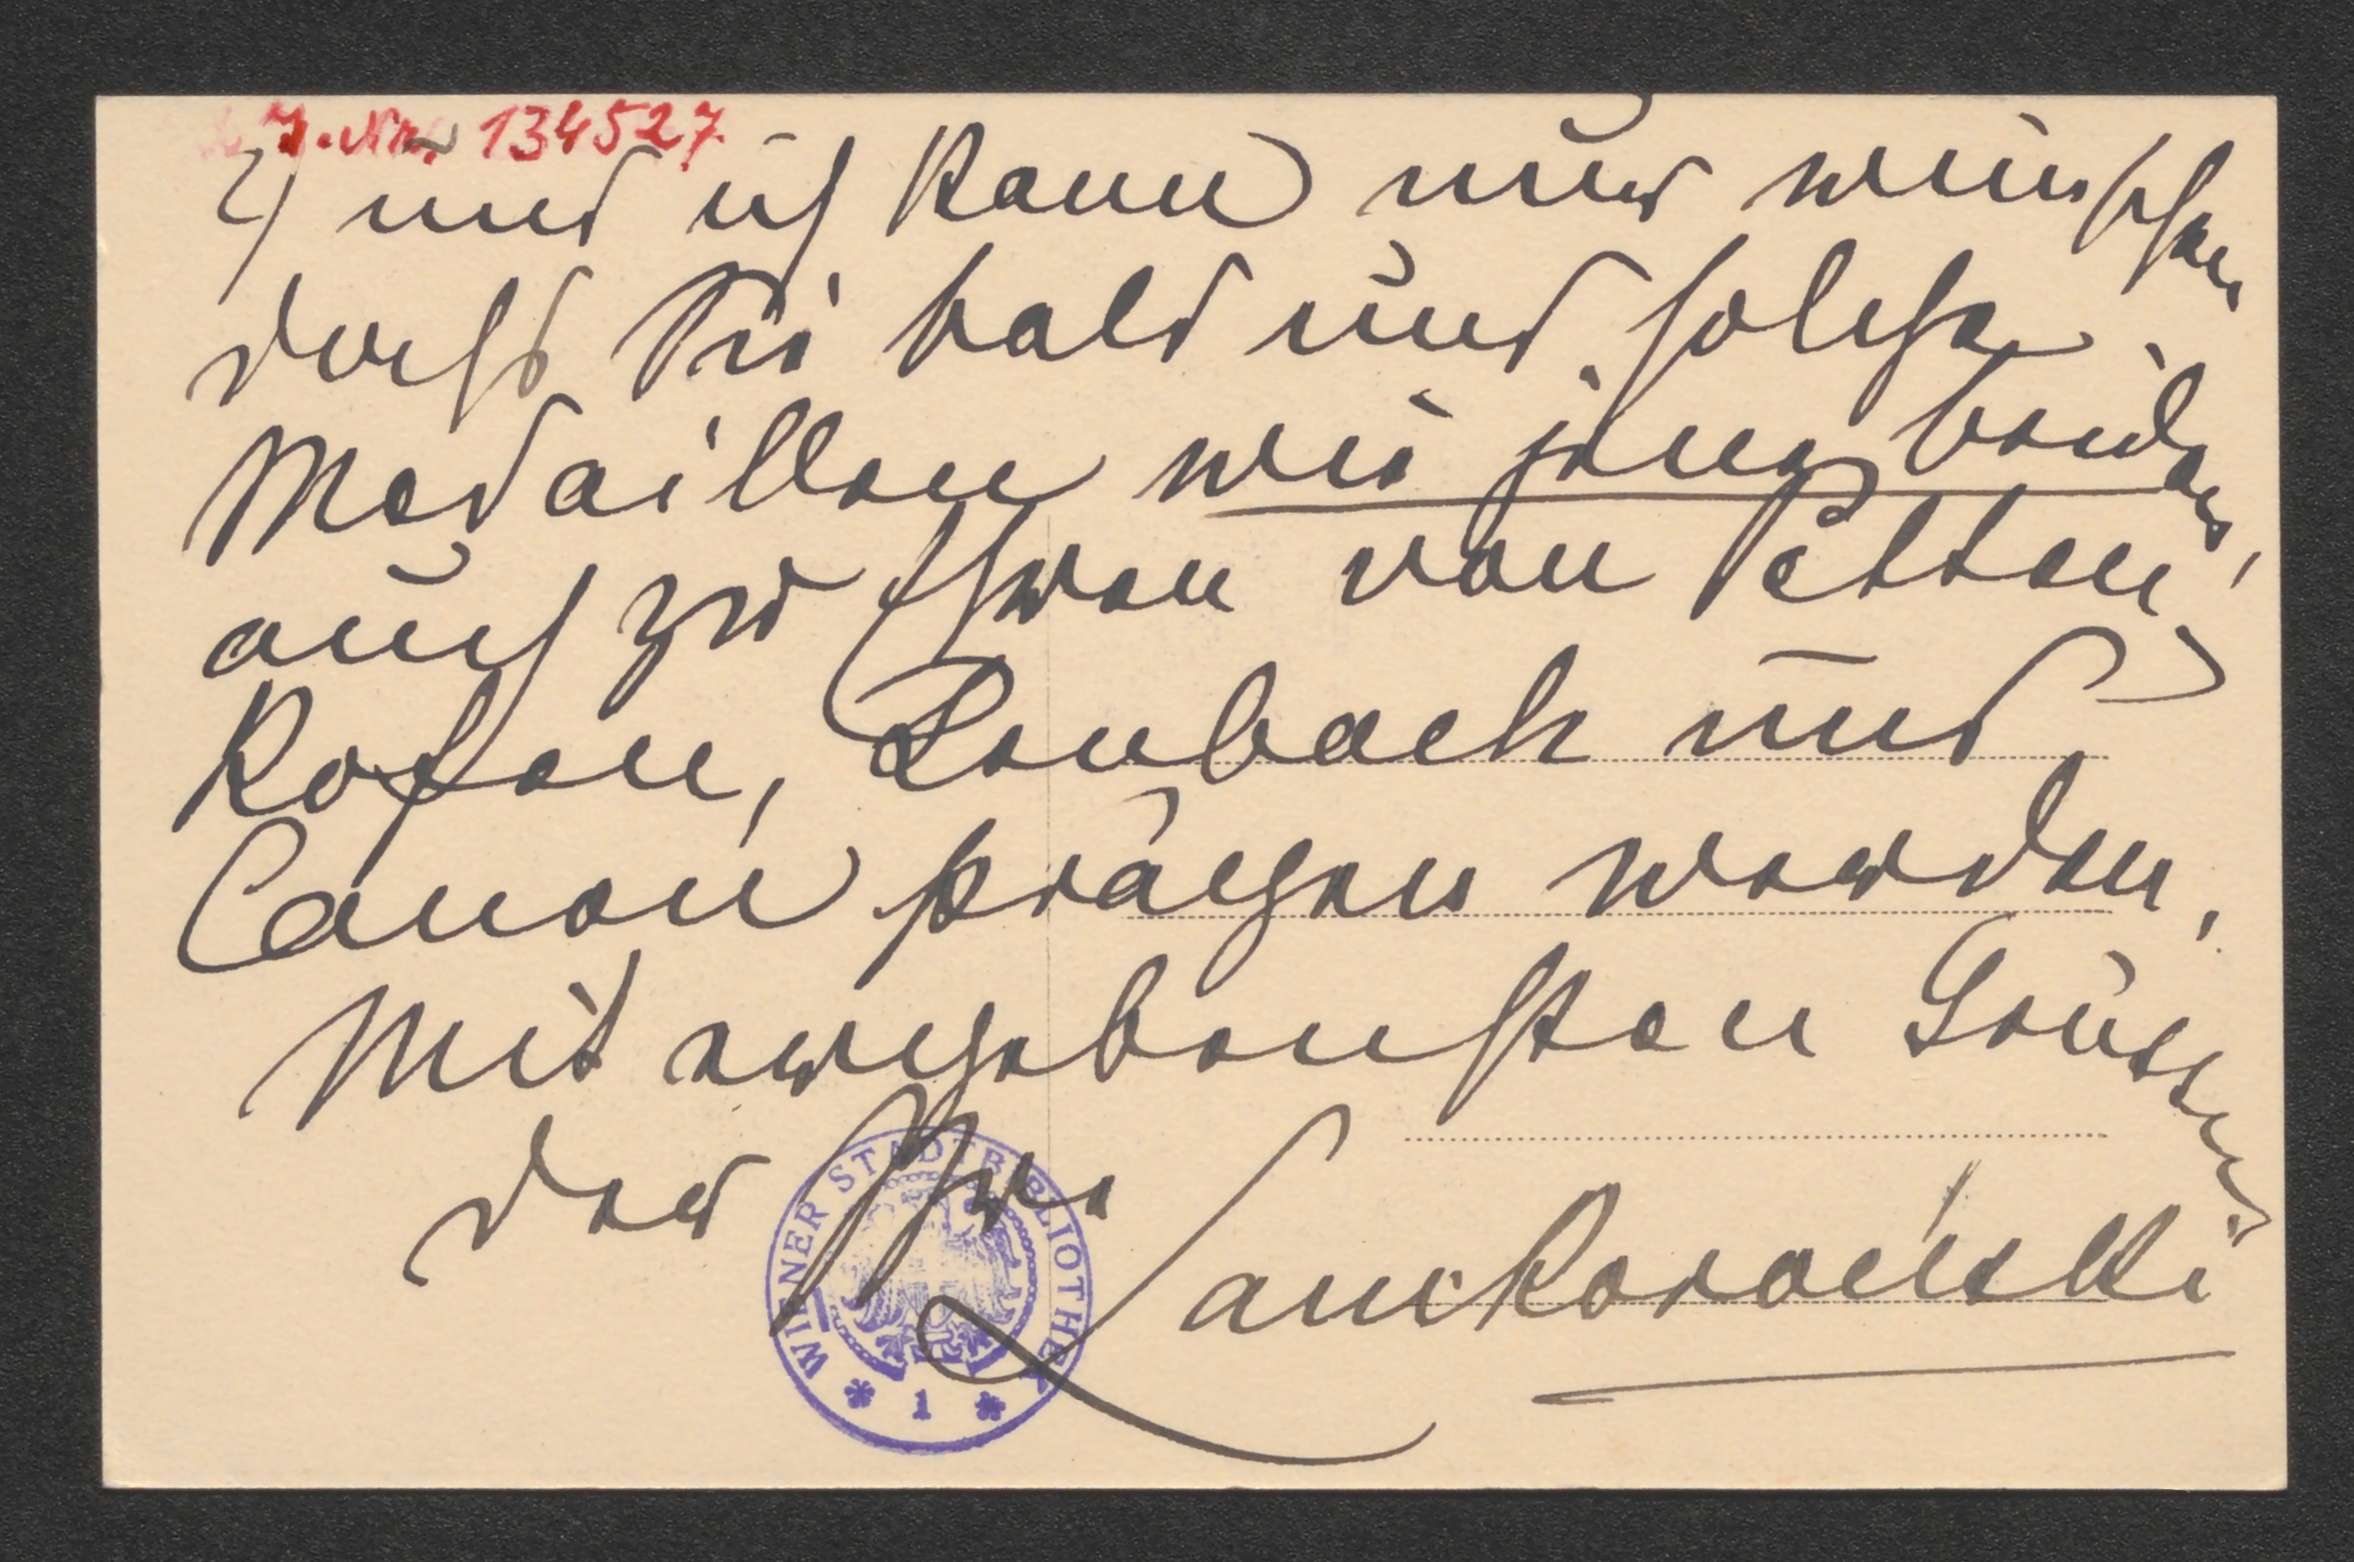 J. Nr. 134527
2) und ich kann nur wünschen
dass Sie bald und solche
Medaillen wie jene beiden,
auch zu Ehren von Petten-
kofen, Lenbach und
Canon prägen werden.
Mit ergebensten Grüssen
der Ihre
Lanckoroński
WIENER STADTBIBLIOTHEK
* 1 *